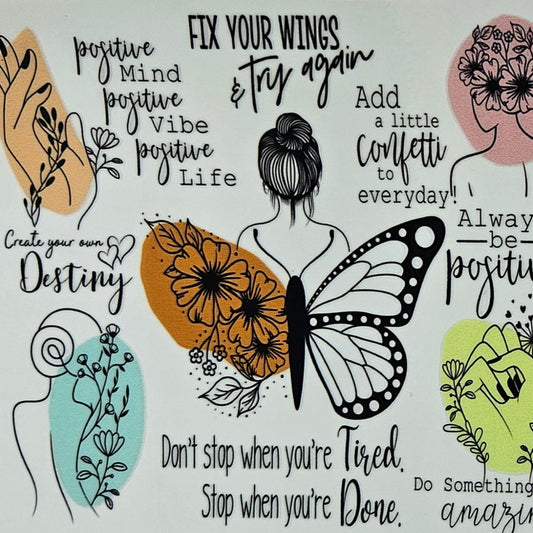 FIX YOUR WINGS
& try again
positive
Mind
positive
Vibe
positive
Life
Add
a little
Confetti
to
everyday!
Create your own
Destiny
Alway
be
positiv
Don't stop when you're Tired.
Stop when you're Done.
Do Something
amazin